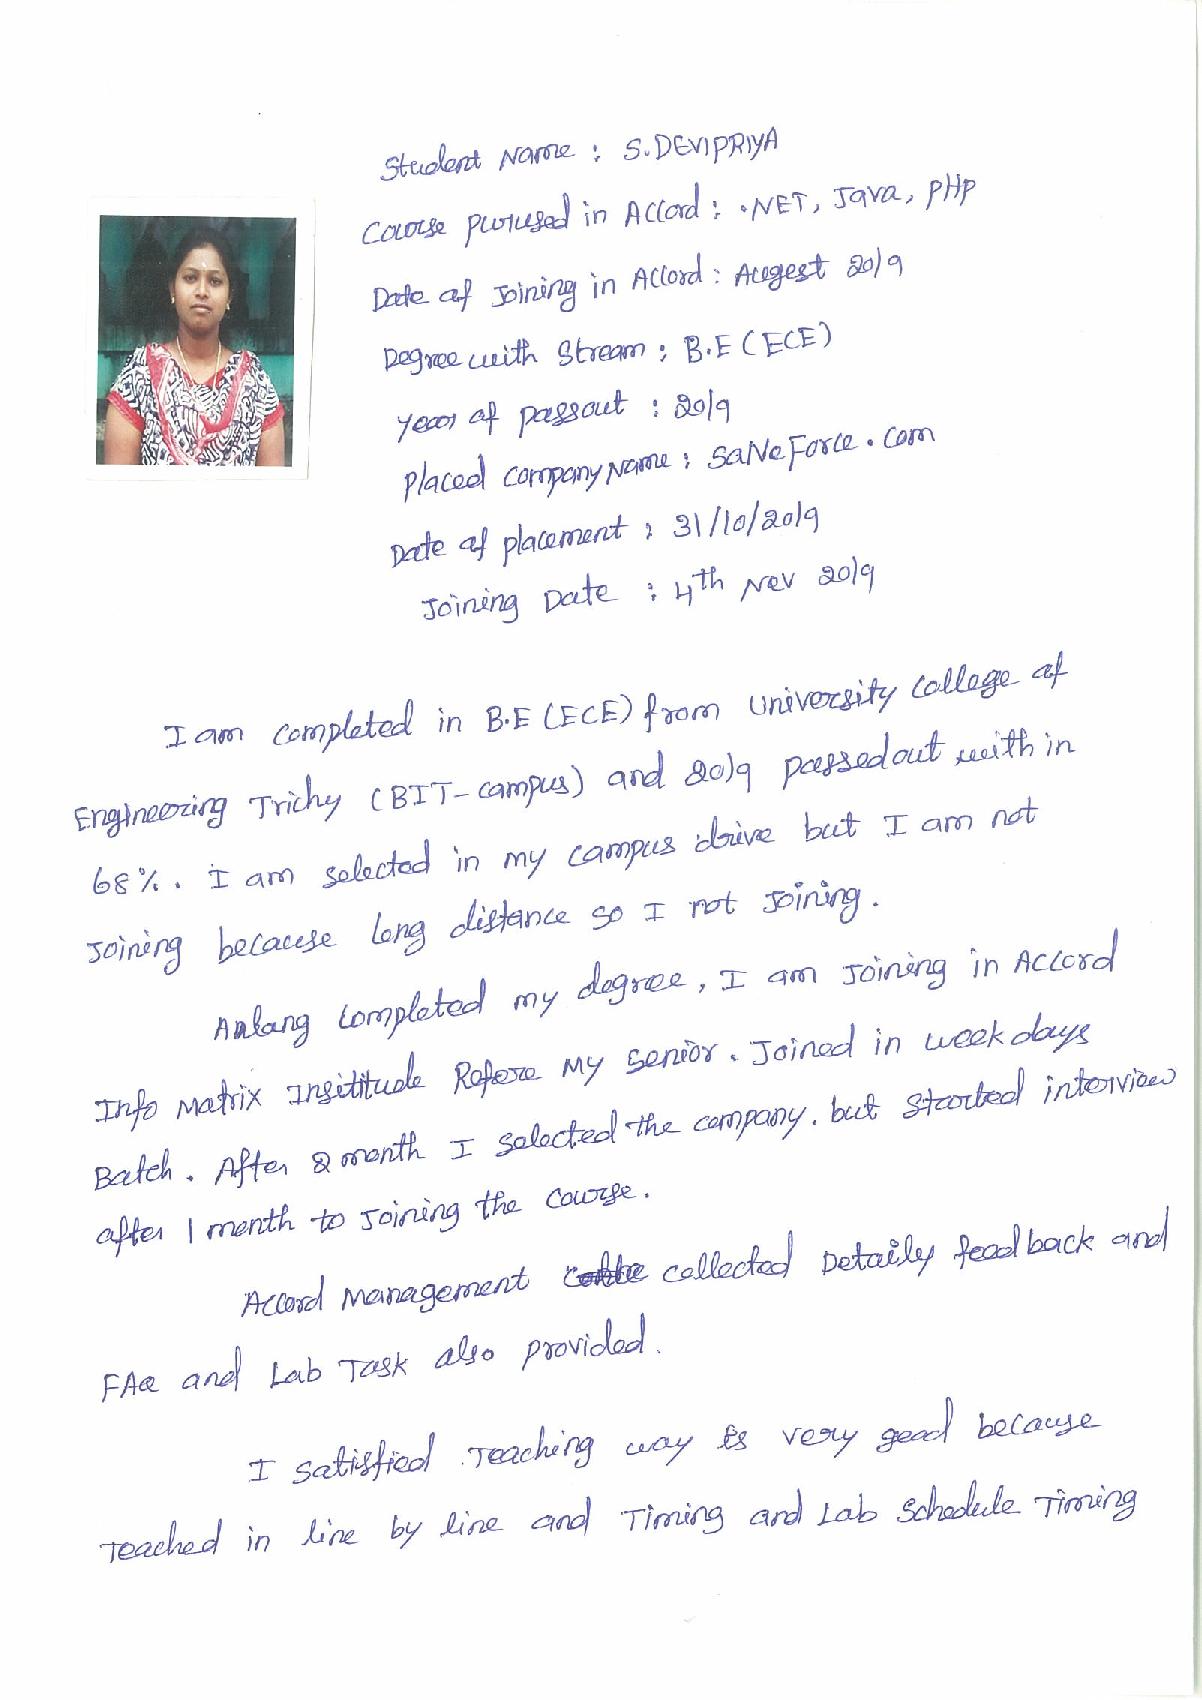 Student Name : S.DEVIPRIYA
Course purused in Accord : .NET, Java, PHP
Date of Joining in Accord : Augest 2019
Degree with Stream : B.E (ECE)
Year of passout : 2019
Placed Company Name : SaNeForce.com
Date of placement : 31/10/2019
Joining Date : 4th Nov 2019
I am completed in B.E (ECE) from University College of
Engineering Trichy (BIT-campus) and 2019 passedout with in
68%. I am selected in my campus drive but I am not
Joining because long distance so I not Joining.
completed my degree, I am Joining in Accord
Info Matrix Insititude Refere My Senior. Joined in week days
Batch. After 2 month I selected the company. but started interview
after 1 month to Joining the course.
Accord Management collected Detaily feedback and
FAQ and Lab Task also provided.
I satisfied Teaching way is very good because
Teached in line by line and Timing and Lab Schedule Timing